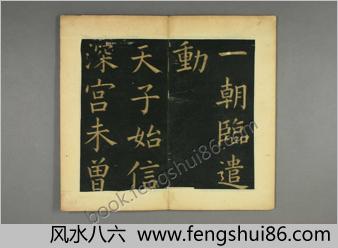 一朝臨遣
動
天子始信
深宮未曾
book.fengshui86.com
风水八六 www.fengshui86.com